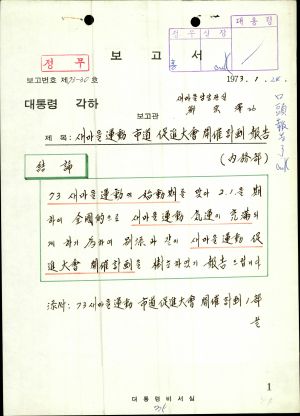 보 고 서
정 무
대 통 령
보고번호 제73-35호
1973. 1.
대통령 각하
새마을담당관실
보고관
口頭報告了
제 목: 새마을運動 市道 促進大會 開催計劃 報告
(内務部)
結論
73 새마을運動의 始動期를 맞아 2.1.을 期
하여 全國的으로 새마을運動 氣運이 充滿되
게 하기 爲하여 別添과 같이 새마을運動 促
進大會 開催計劃을 樹立하였기 報告드립니다
添附: 73새마을運動 市道促進大會 開催計劃 1部
끝
1
대통령비서실